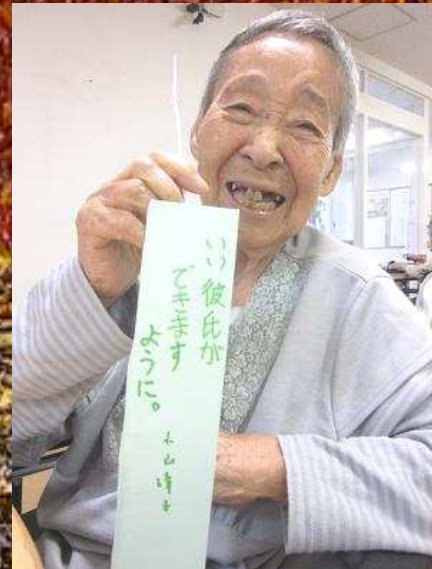 いい彼氏が
できます
ように。